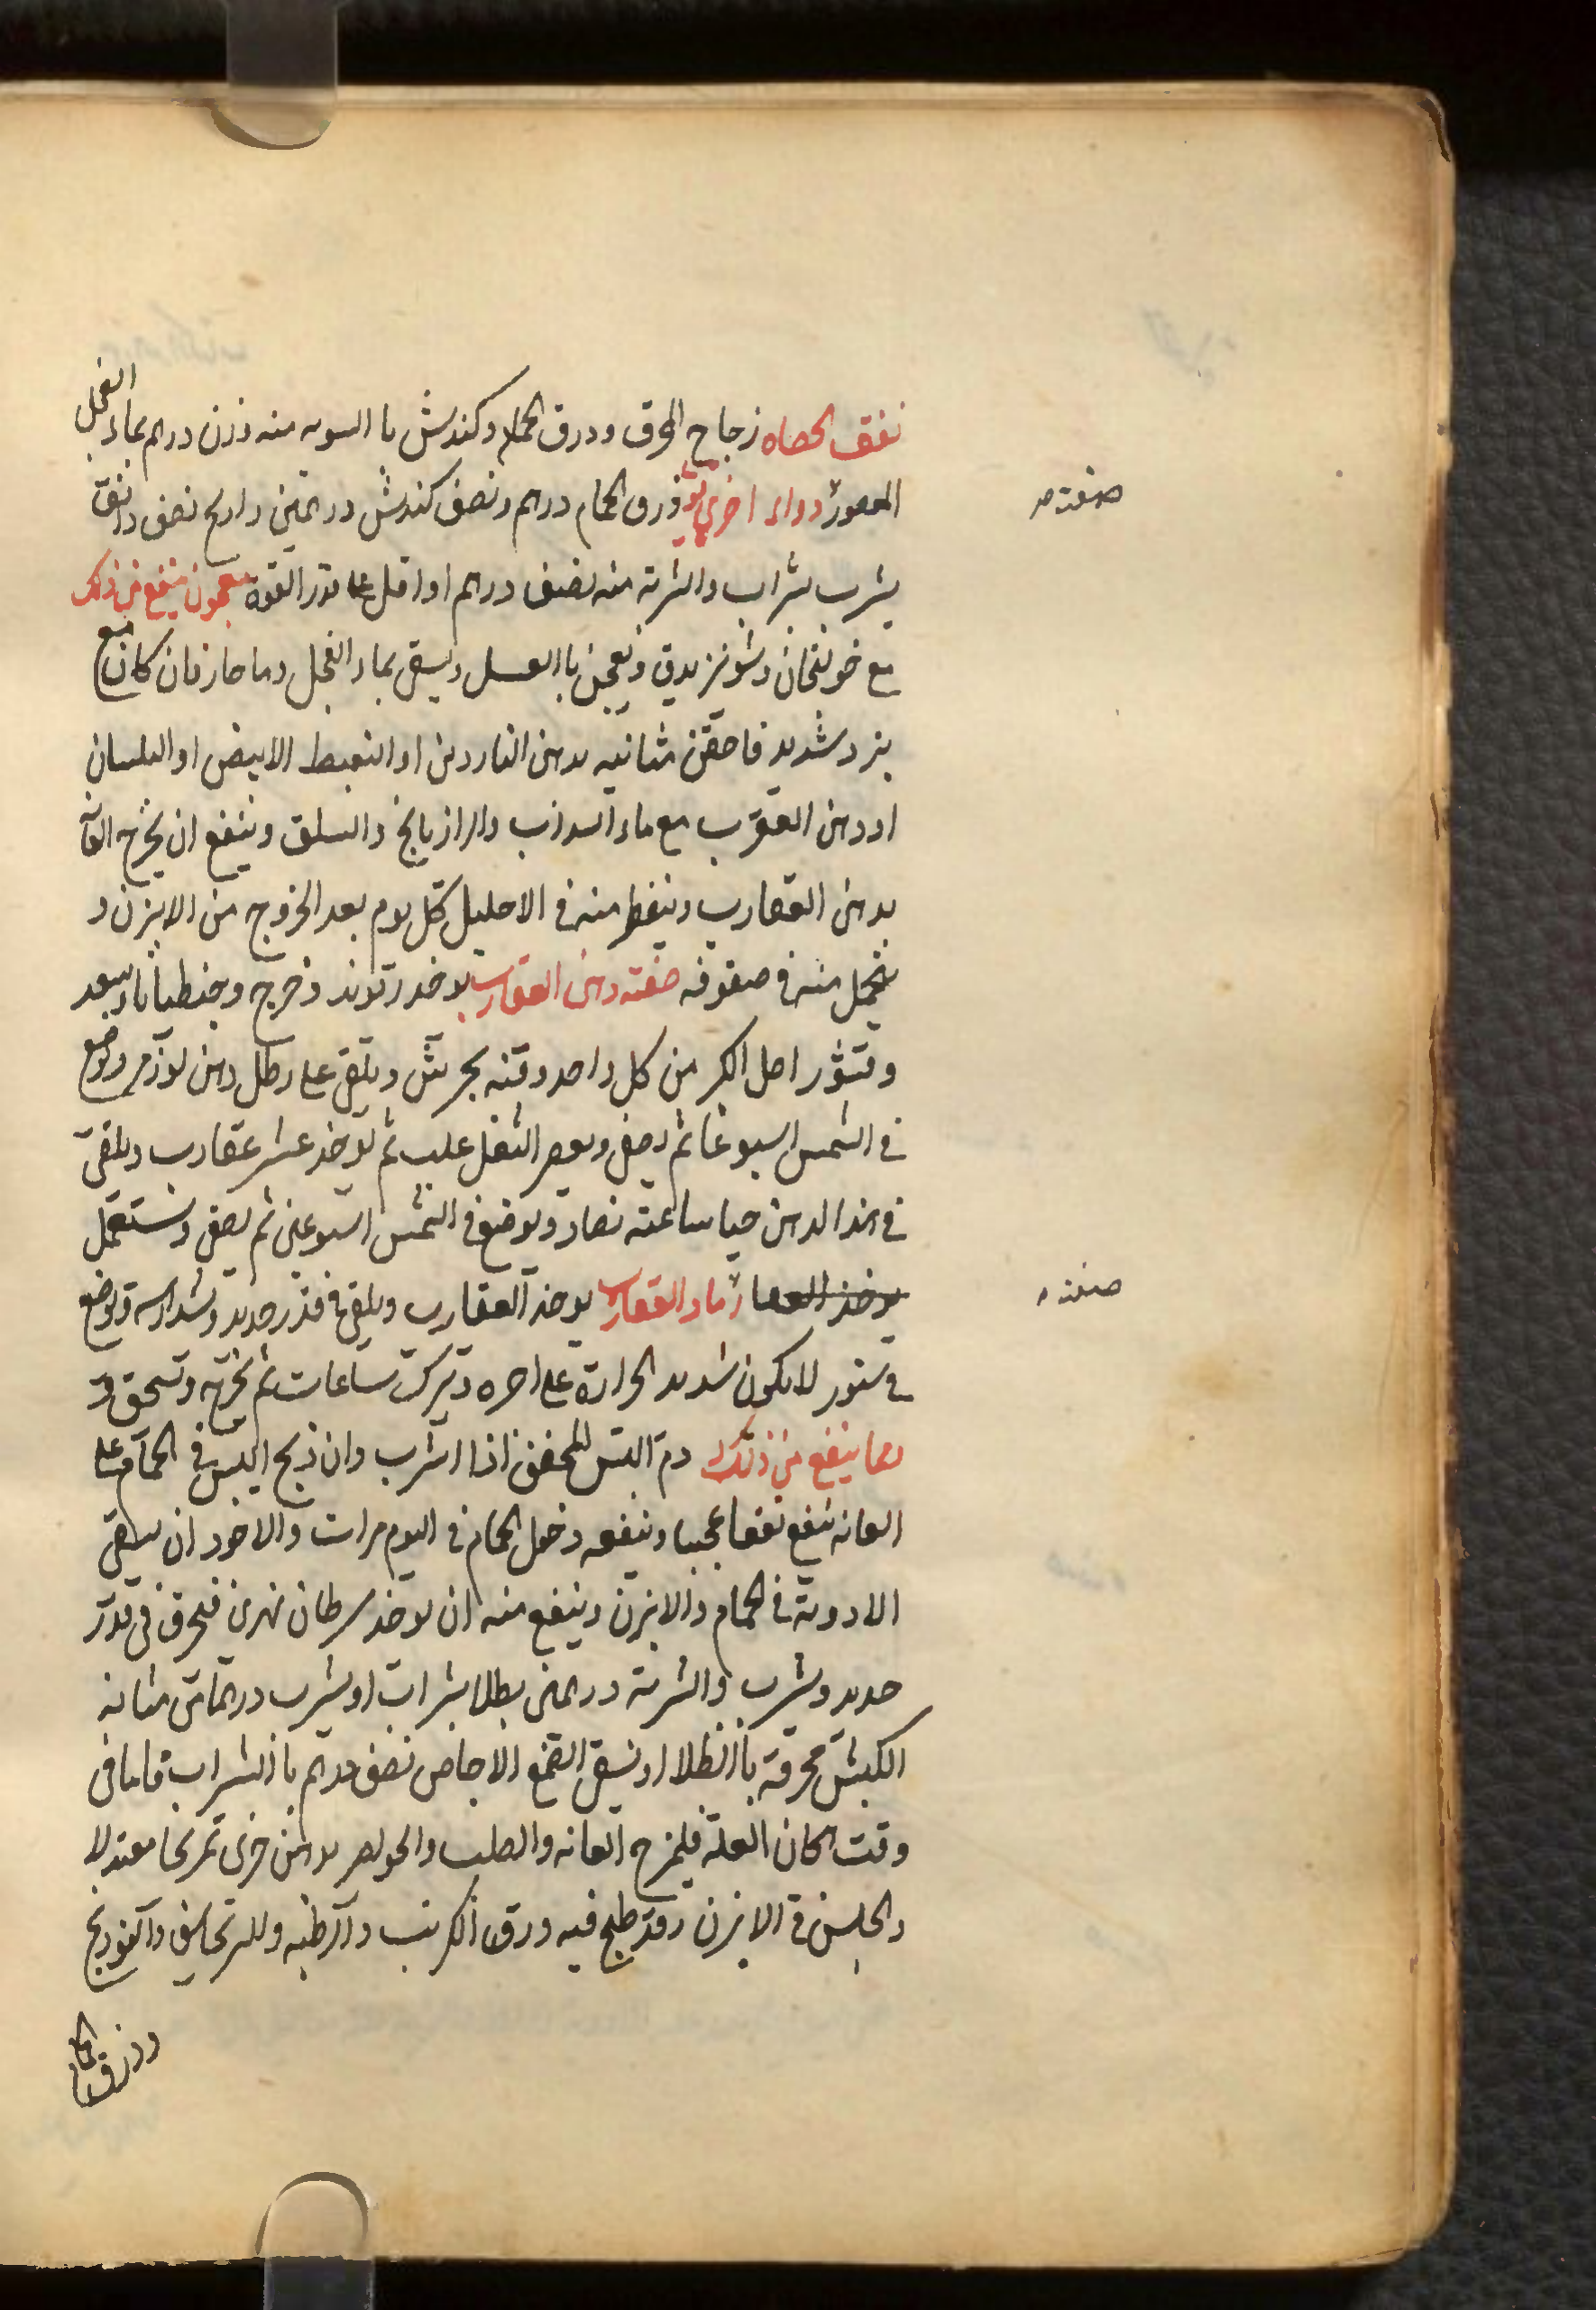 نفق الحصاه زجاج المحرق ودرق الحمام وكندش با السويه منه وزن درهم بماء الفجل
المعصور دواء اخرى قوى ذرق الحمام درهم ونصف كندش درهمين داريح نصف دانق
يشرب بشراب والشربة منه نصف درهم او اقل على قدر القوة معجون ينفع من ذلك
مع خولنجان وشونيز يدق ويعجن باالعسل ويسقى بماء الفجل وماء حار فان كان مع
برد شديد فاحقن مثانيه بدهن الناردين او النعبط الابيض او البلسان
او دهن العقرب مع ماء السذاب والرازيانج والسلق وينفع ان يمرخ العانه
بدهن العقارب وينقط منه في الاحليل كل يوم بعد الخروج من الابزن و
يتحمل منه في صفوفه صفته دهن العقارب يوخذ زتوند دخرج وجنطيانا وسعد
وقشور اصل الكبر من كل واحد وقيه يجرش ويلقى على رطل دهن لوز مر ويوضع
في الشمس اسبوعا ثم يصفى ويعصر الثفل عليه ثم يوخذ عشر عقارب ويلقى
في هذا الدهن حيا ساعته تصاد ويوضع في الشمس اسبوعين ثم يصفى ويستعمل
يوخذ العقا رماد العقارب يوخذ العقارب ويلقى في قدر حديد ويشد راسه ويوضع
في تنور لا يكون شديد الحرارة على اجره ويترك ساعات ثم يخرج وتسحق
مما ينفع من ذلك دم التيس المجفف اذا اشرب وان ذبح التيس في الحمام على
العانه ينفع نفعا عجيبا وينفعه دخول الحمام في اليوم مرات والاجود ان يسقى
الادوية في الحمام والابزن وينفع منه ان يوخذ سرطان نهري فيحرق في قدر
حديد ويشرب والشربة درهمين بطلا بشراب او يشرب درهماين مثانه
الكبش محرقة باالطلا او يسقى الصمغ الاجاص نصف درهم باالشراب فاما في
وقت الحان العلة فليمرخ العانه والصلب والحواصر بدهن خرى تمريخا معتدلا
ويجلس في الابزن وقد طبخ فيه ورق الكرنب والرطبه والبرنجاسف والفودنج
وورق الغار
صفته
صفته